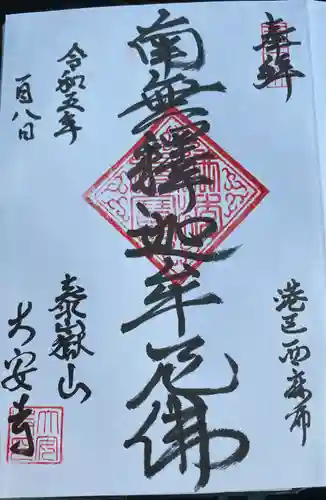 奉拝
港区西麻布
南無釋迦牟尼佛
令和五年
一月八日
泰嶽山
大安寺